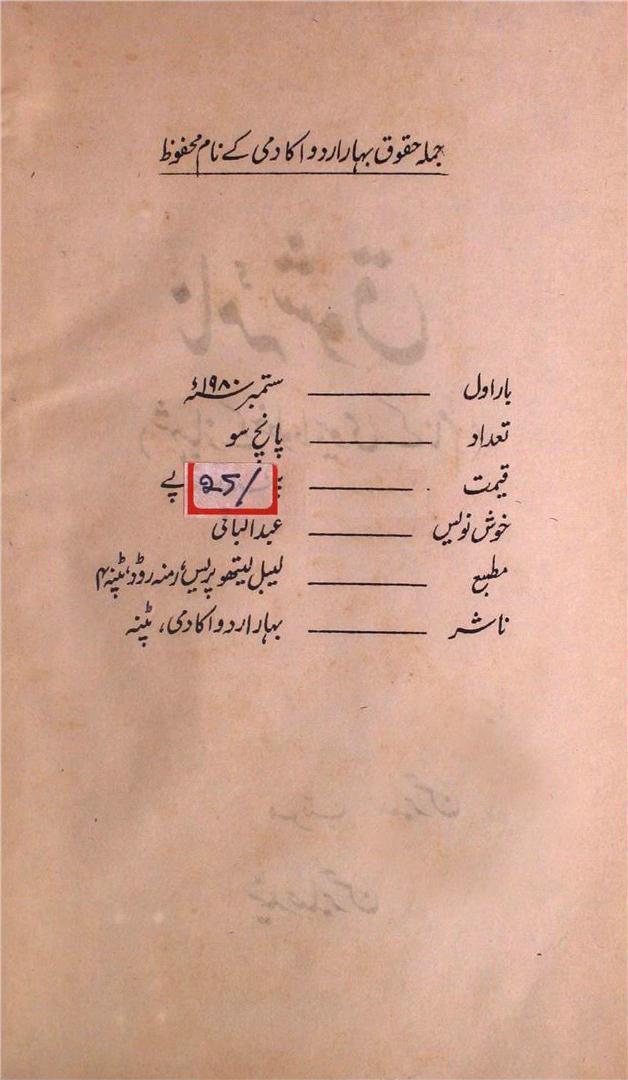 جملہ حقوق بہار اردو اکادمی کے نام محفوظ
بار اول ——— ستمبر ۱۹۸۰ء
تعداد ——— پانچ سو
قیمت ——— 25/ پے
خوش نویس ——— عبدالباقی
مطبع ——— لیبل لیتھو پریس، رمنہ روڈ، پٹنہ ۴
ناشر ——— بہار اردو اکادمی، پٹنہ